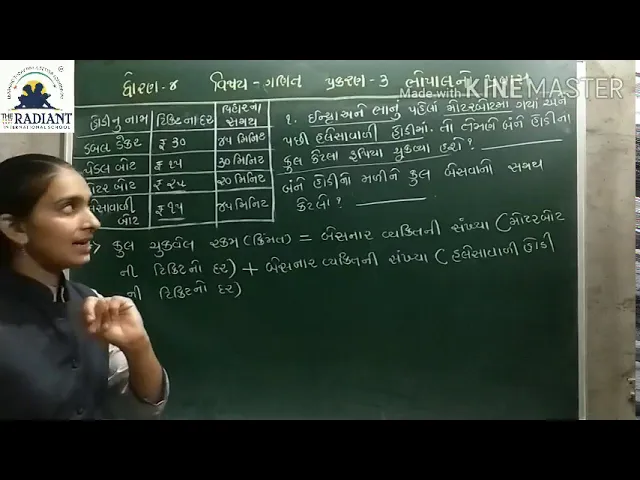 THE RADIANT
INTERNATIONAL SCHOOL
Made with KINEMASTER
ધોરણ-૪ વિષય-ગણિત પ્રકરણ-3 ભોપાલનો
હોડીનુ નામ ટિકિટના દર વિહારના સમય
ડબલ ડેકર ₹ ૩૦ ૪૫ મિનિટ
પેડલ બોટ ₹ ૧૫ ૩૦ મિનિટ
મોટર બોટ ₹ ૨૫ ૨૦ મિનિટ
હલેસાવાળી બોટ ₹ ૧૫ ૪૫ મિનિટ
૧. ઈન્થા અને ભાનું પહેલાં મોટરબોટમાં ગયાં અને
પછી હલેસાવાળી હોડીમાં. તો તેમણે બંને હોડીના
કુલ કેટલા રૂપિયા ચુકવ્યા હશે?
બંને હોડીનો મળીને કુલ બેસવાનો સમય
કેટલો?
> કુલ ચુકવેલ રકમ (કિંમત) = બેસનાર વ્યક્તિની સંખ્યા (મોટરબોટ
ની ટિકિટનો દર) + બેસનાર વ્યક્તિની સંખ્યા (હલેસાવાળી હોડી
ની ટિકિટનો દર)